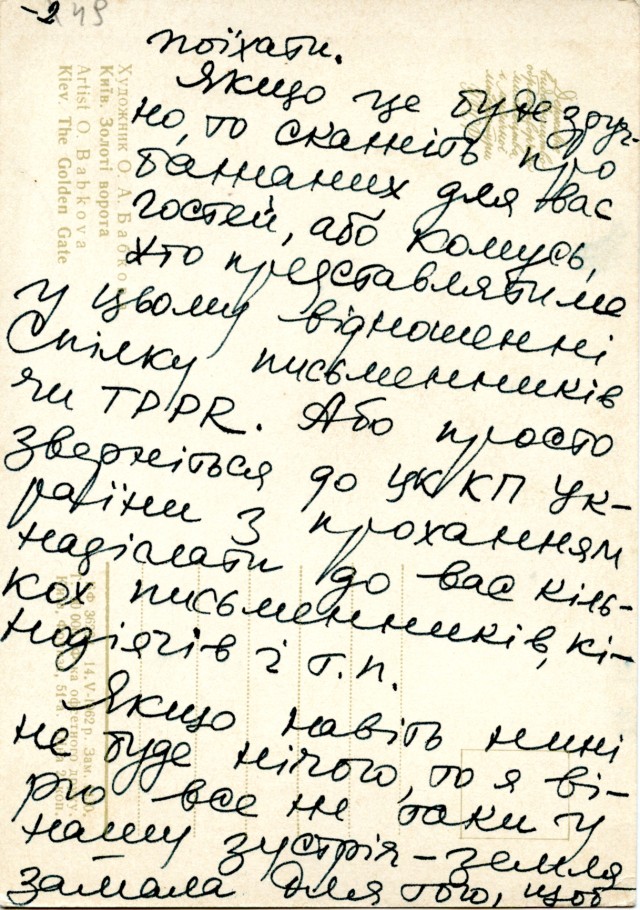 -2
49
поїхати.
Якщо це буде зруч-
но, то скажіть про
бажаних для вас
гостей, або комусь,
хто представлятиме
у цьому відношенні
Спілку письменників
чи TPPR. Або просто
зверніться до ЦК КП Ук-
раїни з проханням
надіслати до вас кіль-
кох письменників, кі-
нодіячів і т.п.
Якщо навіть нині
не буде нічого, то я ві-
рю все ж таки у
нашу зустріч - земля
замала для того, щоб
Художник О. А. Бабков
Київ. Золоті ворота
Artist O. Babkova
Kiev. The Golden Gate